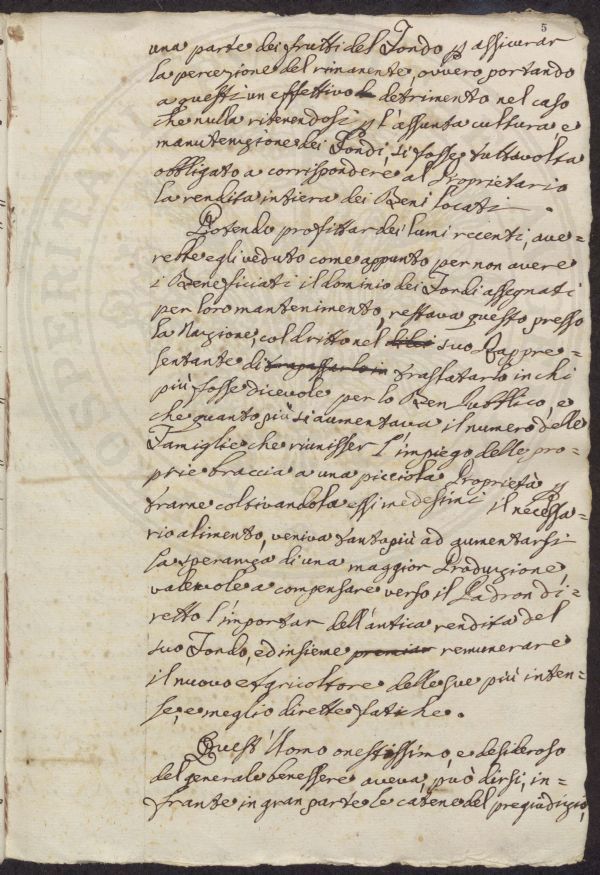 5
una parte dei frutti del Fondo p assicurar
la percezione del rimanente, ovvero portando
a questi un effettivo detrimento nel caso
che nulla ritenendosi p l'assunta cultura e
manutenzione dei Fondi, si fosse tuttavolta
obbligato a corrispondere al Proprietario
la rendita intiera dei Beni locati.
Potendo profittar dei lumi recenti, ave=
rebbe egli veduto come appunto per non avere
i Beneficiati il dominio dei Fondi assegnati
per loro mantenimento, restava questo presso
la Nazione, col dritto nel suo Rappre=
sentante di trapassarlo in traslatarlo in chi
più fosse dicevole per lo Ben Pubblico, e
che quanto più si aumentava il numero delle
Famiglie che riunisser l'impiego delle pro=
prie braccia a una picciola Proprietà p
trarne coltivandola essi medesimi il necessa=
rio alimento, veniva tanto più ad aumentarsi
la speranza di una maggior Produzione
valevole a compensare verso il Padron di=
retto l'importar dell'antica rendita del
suo Fondo, ed insieme premiar remunerare
il nuovo Agricoltore delle sue più inten=
se, e meglio dirette fatiche.
Quest'Uomo onestissimo, e desideroso
del generale benessere aveva, può dirsi, in=
frante in gran parte le catene del pregiudizio,